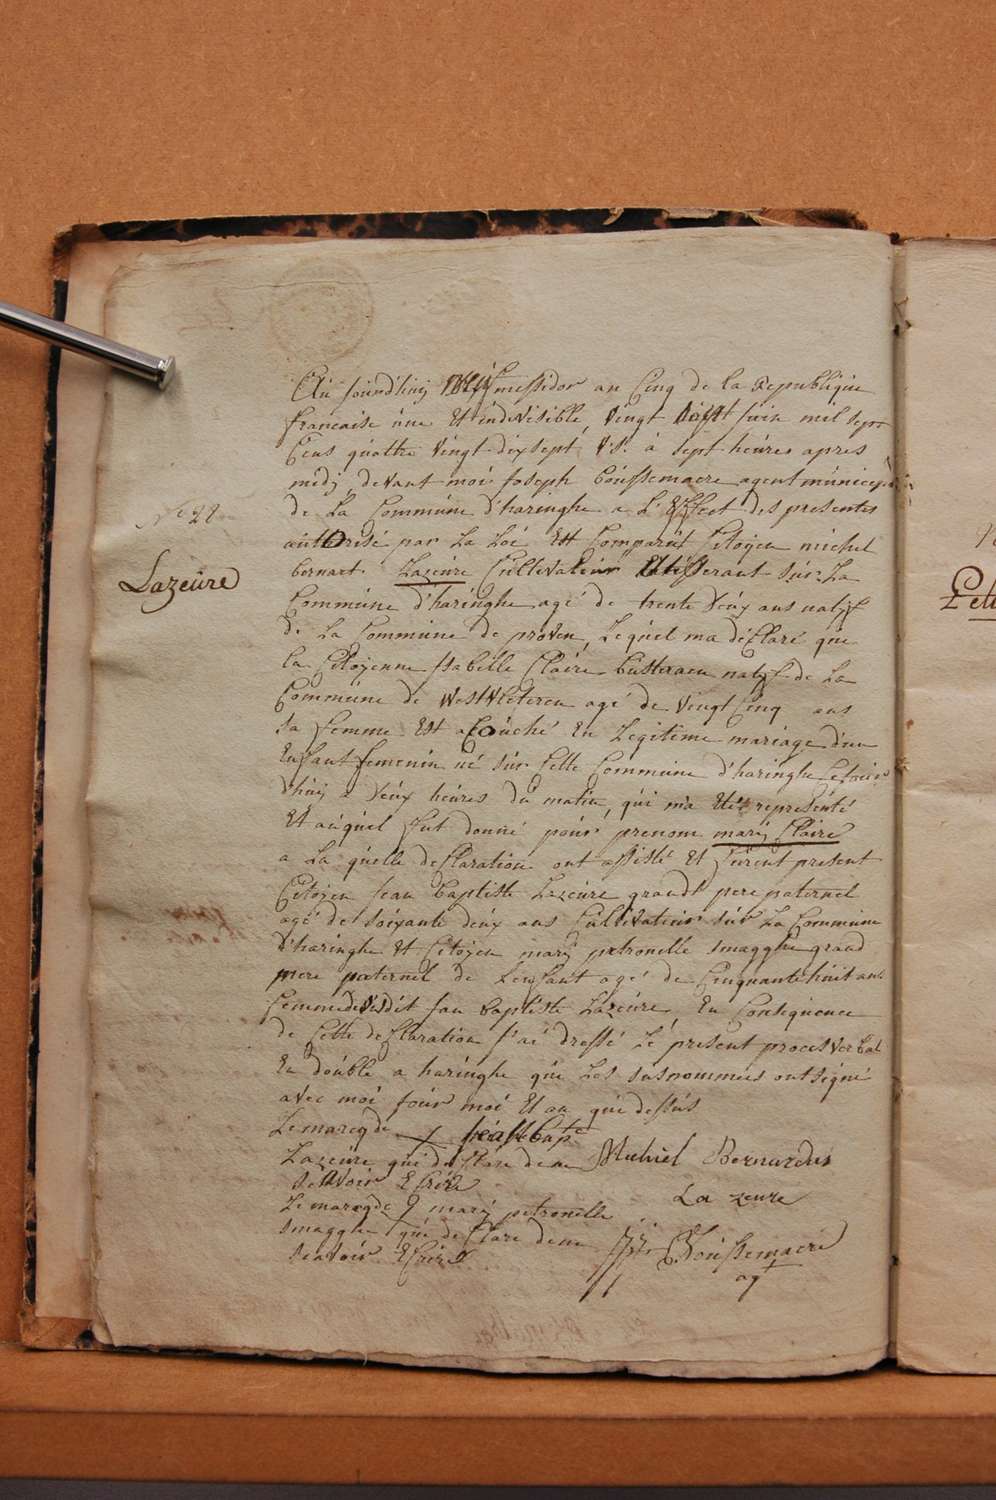 Au jourd'huij messidor an Cinq de la Republique
francaise úne Et indivisible, vingt juin mil sept
Cens quattre vingt dix sept V:S: à sept heúres apres
midj devant moi joseph Boússemaere agent múnicipal
de La Commúne d'haringhe a L'Effect des presentes
aúttorisé par La Loi Est Comparút Citoÿen michel
bernart Lazeúre Cúltivateúr Et tisserant súr La
Commúne d'haringhe agé de trente deúx ans natif
de La Commúne de proven, Lequel ma déClaré que
la Citoÿenne Isabelle Claire natif de La
Commúne de Westvleteren agé de vingt Cinq ans
sa femme Est aCoúché En Legitime mariage d'un
Enfant femenin né súr Cette Commúne d'haringhe Cejoúr
d'húij a deúx heúres dú matin, qúi m'a Eté representé
Et aúqúel fut donné poúr prenom marij Claire
a La qúelle deClaration ont assisté Et fúrent present
Citoÿen jean baptiste Lazeúre grand pere paternel
agé de soixante deúx ans Cúltivateúr súr La Commúne
d'haringhe Et Citoÿen marij petronelle smagghe grand
mere paternel de L'enfant agé de Cinquante húit ans
femme dúdit jan baptiste Lazeúre, En Conseqúence
de Cette deClaration j'ai dressé Le présent proces verbal
En doúble a haringhe qúe Les súsnommés ont signé
avec moi joúr moi Et an qúe dessús
Le marcq de + jean bapte
Lazeúre qúi déClare de ne
sCavoir ECrire
Michiel Bernardus
La zeure
Le marcq de marij petronelle
smagghe qúi deClare de ne
scavoir ECrire
Boússemaere
agt
No 28
Lazeúre